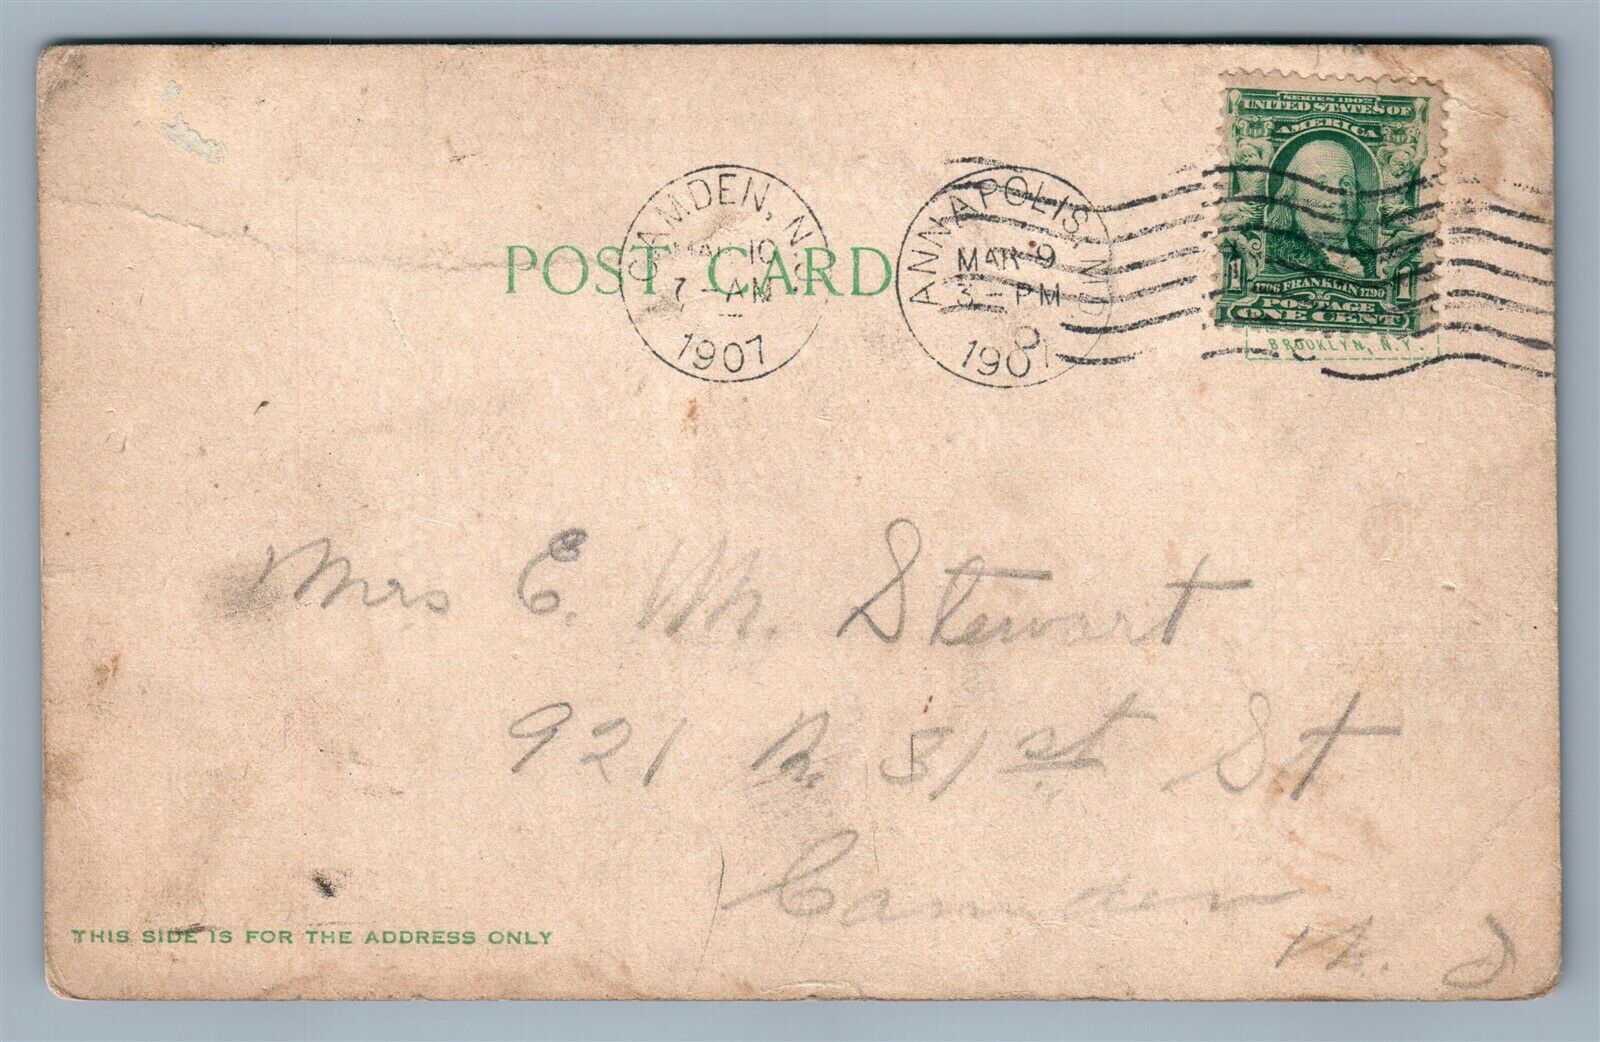 SERIES 1902
UNITED STATES OF
AMERICA
1 1706 FRANKLIN 1790 1
POSTAGE
ONE CENT
BROOKLYN, N.Y.
POST CARD
CAMDEN, N.J.
MAR 10
7 - AM
1907
ANNAPOLIS, MD.
MAR 9
3 - PM
1907
Mrs E. M. Stewart
921 N. 31st St
Camden
N. J
THIS SIDE IS FOR THE ADDRESS ONLY